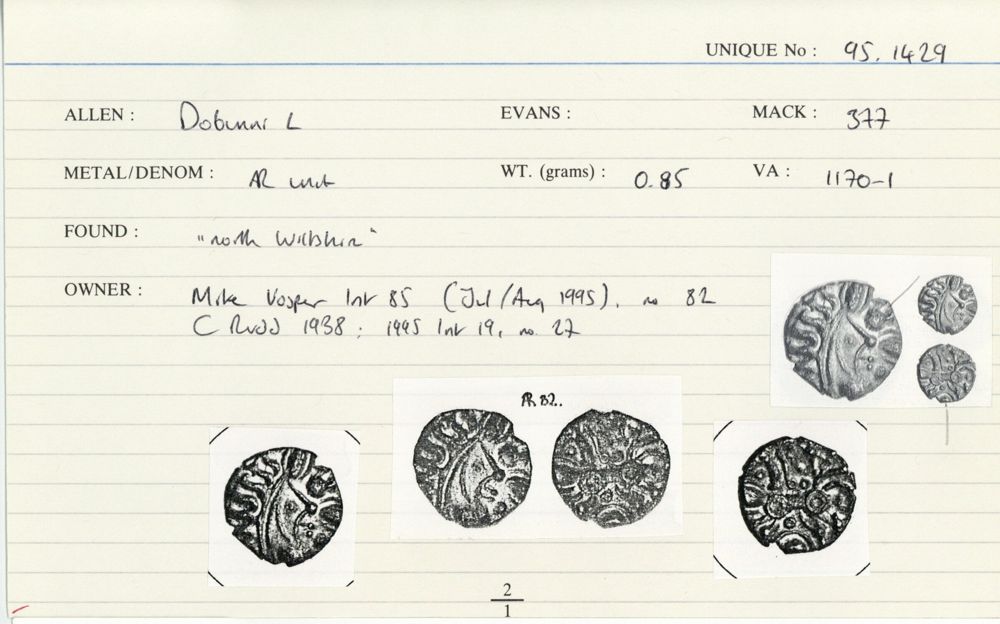 UNIQUE No : 95.1429
ALLEN : Dobunni L EVANS : MACK : 377
METAL/DENOM : AR unit WT. (grams) : 0.85 VA : 1170-1
FOUND : "north Wiltshire"
OWNER : Mike Vosper list 85 (Jul/Aug 1995), no 82
C Rudd 1938 ; 1995 list 19, no. 27
AR 82..
2
1